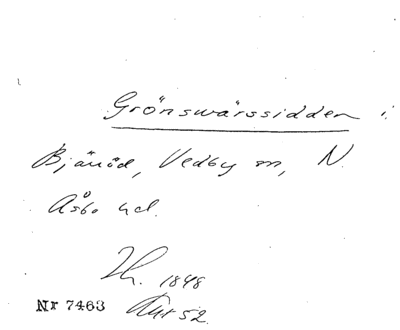 Grönswärssidden i
Bjäröd, Vedby sn, N.
Åsbo hd.
1848
Nr 7463 52